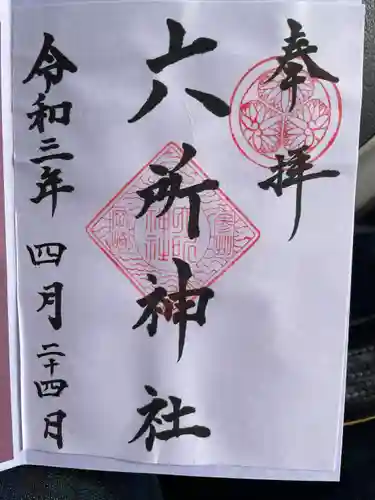 奉拝
六所神社
令和三年四月二十四日